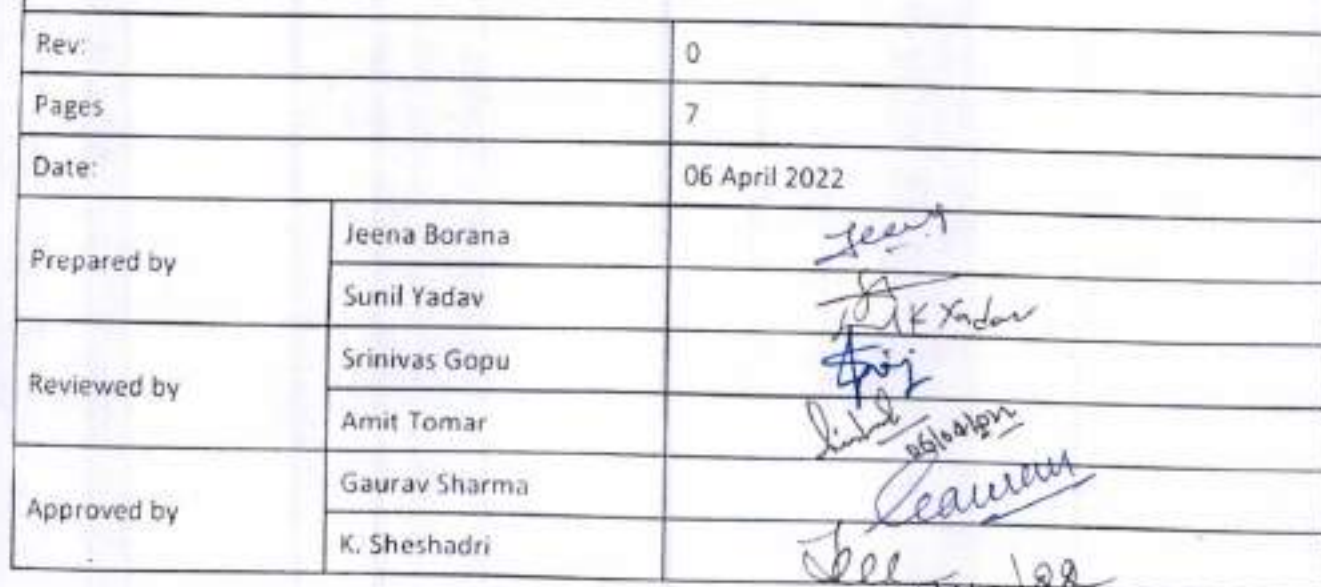 Rev: 0
Pages 7
Date: 06 April 2022
Prepared by
Jeena Borana Jeena
Sunil Yadav SK Yadav
Reviewed by
Srinivas Gopu
Amit Tomar
06/04/2022
Approved by
Gaurav Sharma Gaurav
K. Sheshadri